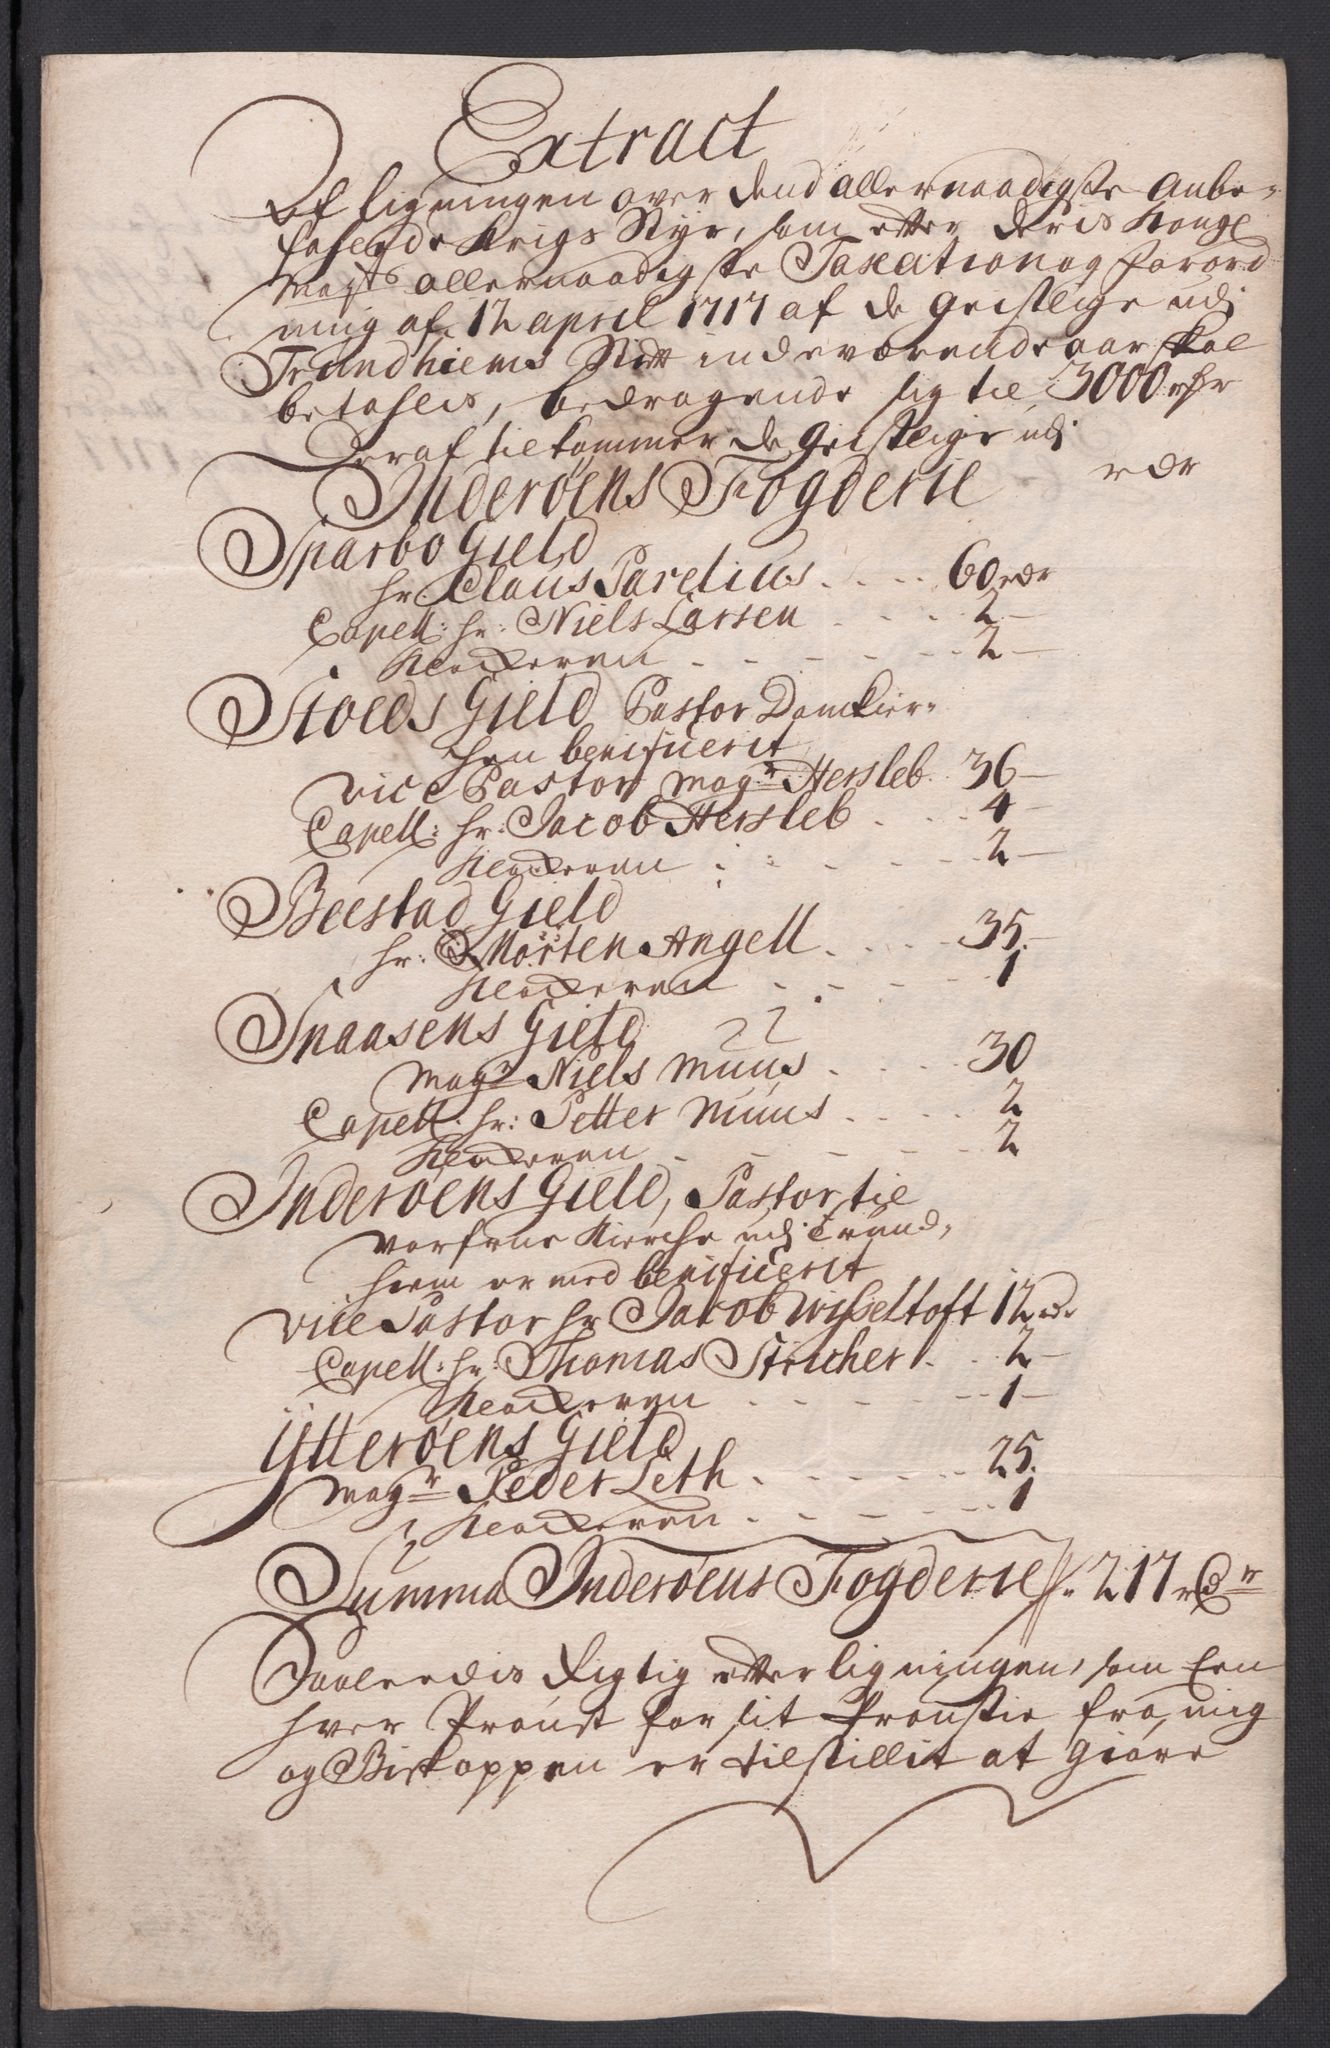 Extract
Af ligningen over dend allernaadigste Anbe-
falende Krigs Styr, som efter Deris Kongl
Mayts allernaadigste Taxation og forord
ning af 12 april 1717 af de Geistlige udj
Trundhiems Stift indeværende aar skal
betahles, bedragende sig til 3000 rdr
Deraf tilkommer de Geistlige udj
Inderøens Fogderie rdr
Sparbo Gield
hr: Claus Parelius . . . . 60 rdr
Capell: hr: Niels Larsen . . . . 2 -
Klockeren - - - - - 2 -
Stoeds Gield Pastor Domkier-
chen benificerit
vice Pastor Magr Hersleb . . 36 -
Capell: hr: Jacob Hersleb . . . 4 -
Klockeren - - - - - 2 -
Beestad Gield
hr: Morten Angell . . . . 35. -
Klockeren - - - - - 1
Snaasens Gield
Magr Niels Muus . . . . 30
Capell. hr: Petter Muus . . . . 2
Klockeren - - - - - 2
Inderøens Gield, Pastor til
Vorfrue Kierche udj Trund-
hiem er med benificerit
vice Pastor hr Jacob Wisseltoft 12 rdr
Capell: hr: Thomas Stricher . . . 2 -
Klockeren - - - - - 1 -
Ytterøens Gield
Magr Peder Leth . . . . . 25.
Klockeren - - - - - 1
Summa Inderøens Fogderie 217 rdr
Saaledis Rigtig efter ligningen, som Een
hver Proust for sit Proustie fra mig
og Biskoppen er tilstillit at giøre